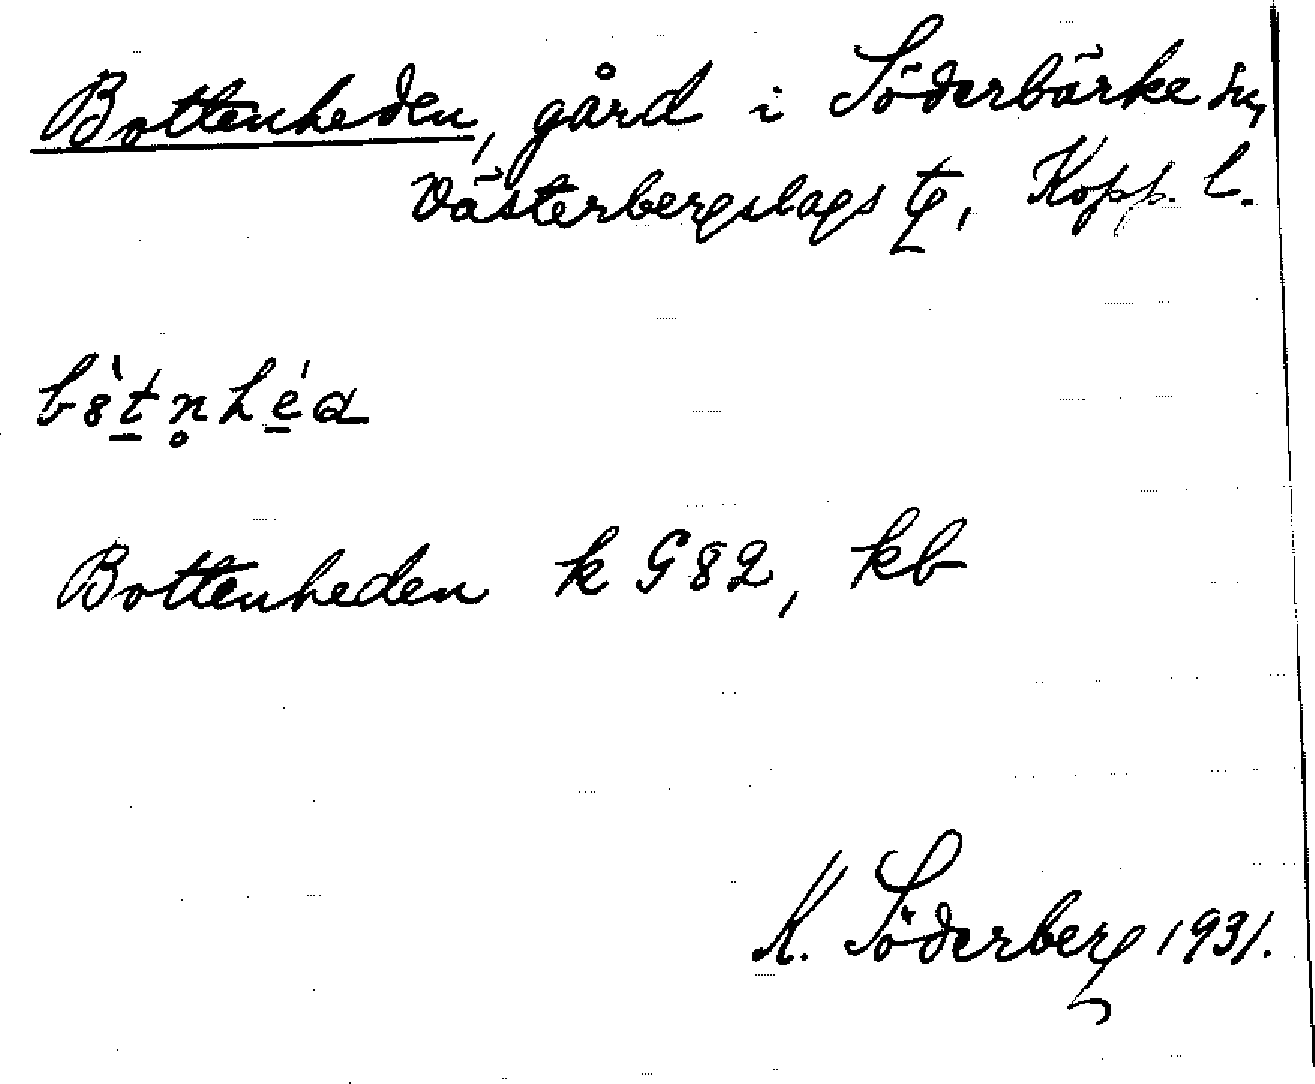 Bottenheden, gård i Söderbärke sn,
Västerbergslags tg, Kopp. l.
b8̀t̲n̥hé̲a
Bottenheden k G82, kb
K. Söderberg 1931.